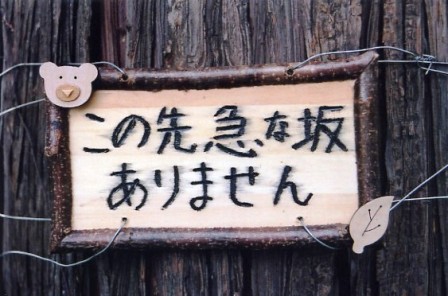 この先急な坂
ありません